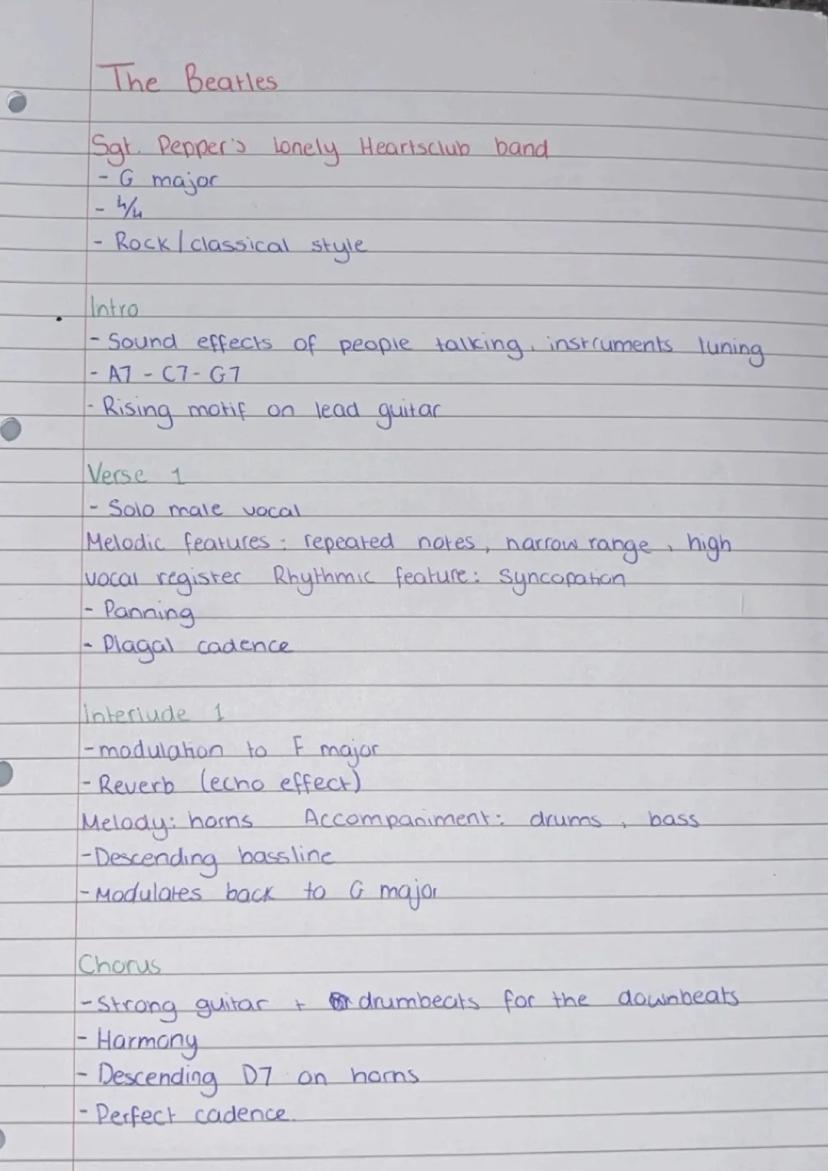 The Beatles
Sgt. Pepper's lonely Heartsclub band
- G major
- 4/4
- Rock/classical style
Intro
- Sound effects of people talking, instruments tuning
- A7 - C7 - G7
- Rising motif on lead guitar
Verse 1
- Solo male vocal
Melodic features: repeated notes, narrow range, high
vocal register Rhythmic feature: Syncopation
- Panning
- Plagal cadence
Interlude 1
- modulation to F major
- Reverb (echo effect)
Melody: horns Accompaniment: drums, bass
- Descending bassline
- Modulates back to G major
Chorus
- Strong guitar + drumbeats for the downbeats
- Harmony
- Descending D7 on horns
- Perfect cadence.